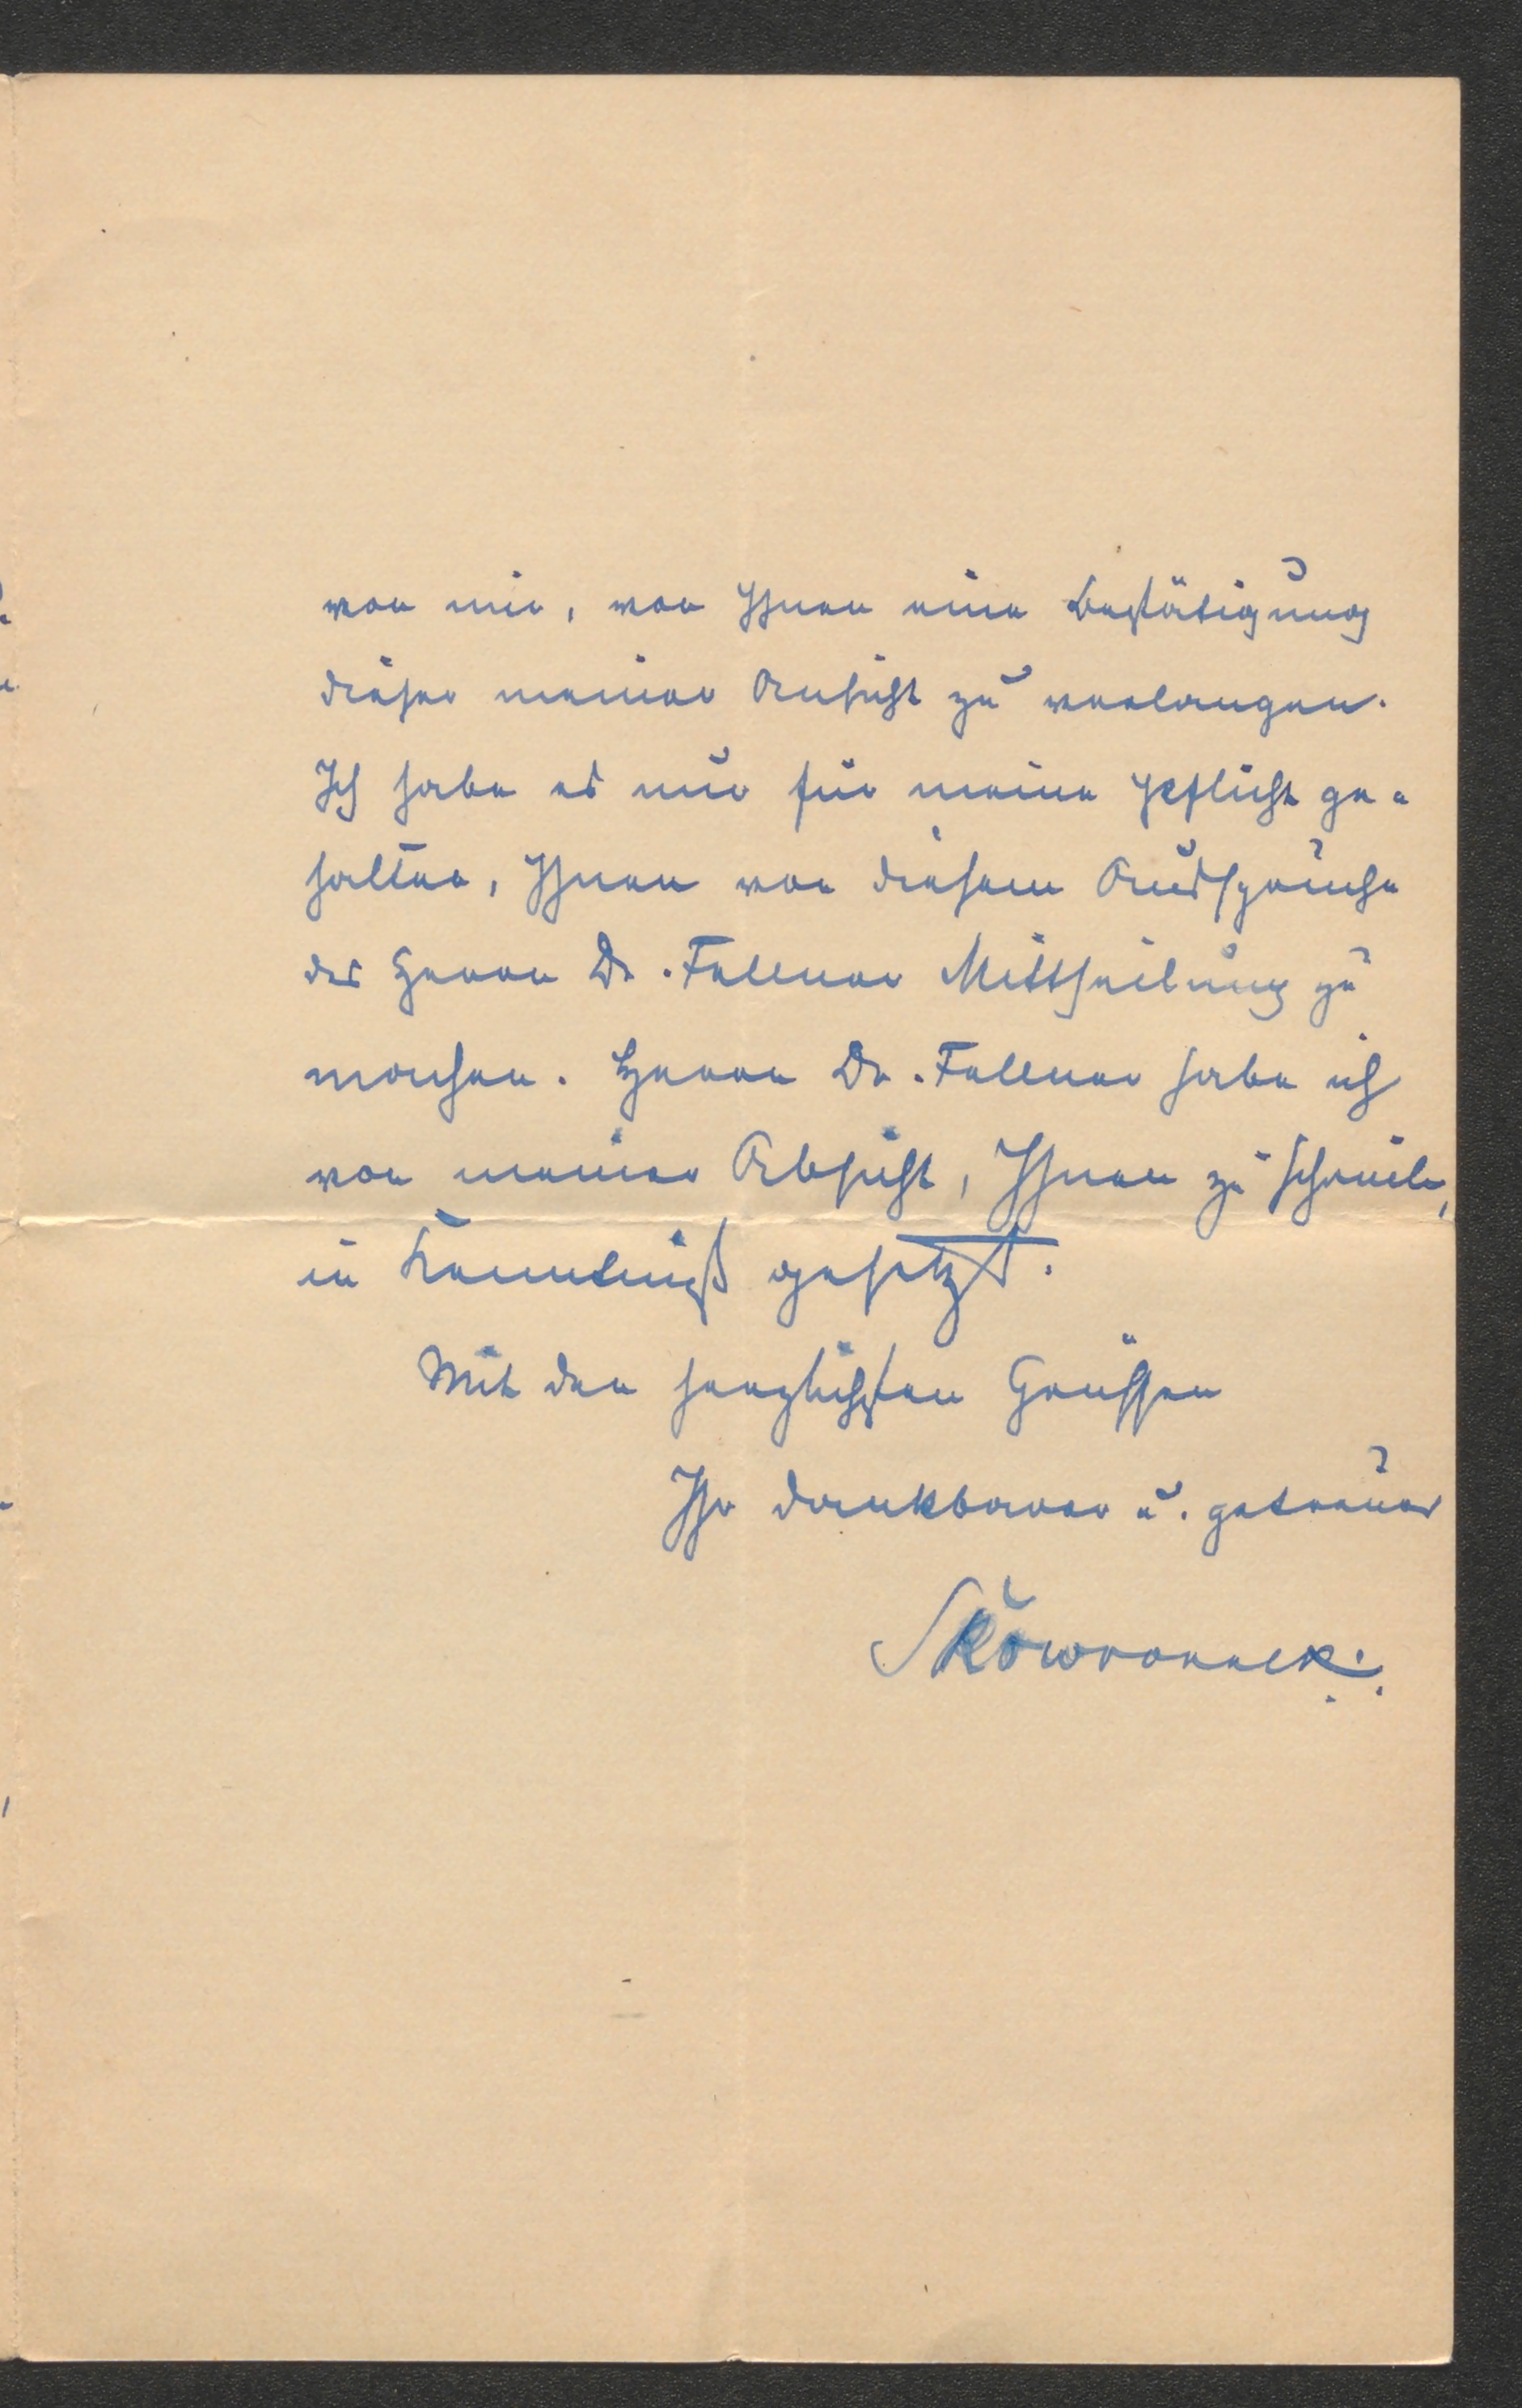 von mir, von Ihnen eine Bestätigung
dieser meiner Ansicht zu verlangen.
Ich habe es nur für meine Pflicht ge-
halten, Ihnen von diesem Ausspruche
des Herrn Dr. Fellner Mittheilung zu
machen. Herrn Dr. Fellner habe ich
von meiner Absicht, Ihnen zu schreiben,
in Kenntniß gesetzt.
Mit den herzlichsten Grüssen
Ihr dankbarer u. getreuer
Skowronnek.